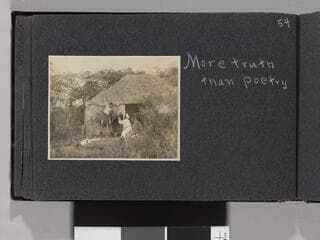 54
More truth
than poetry